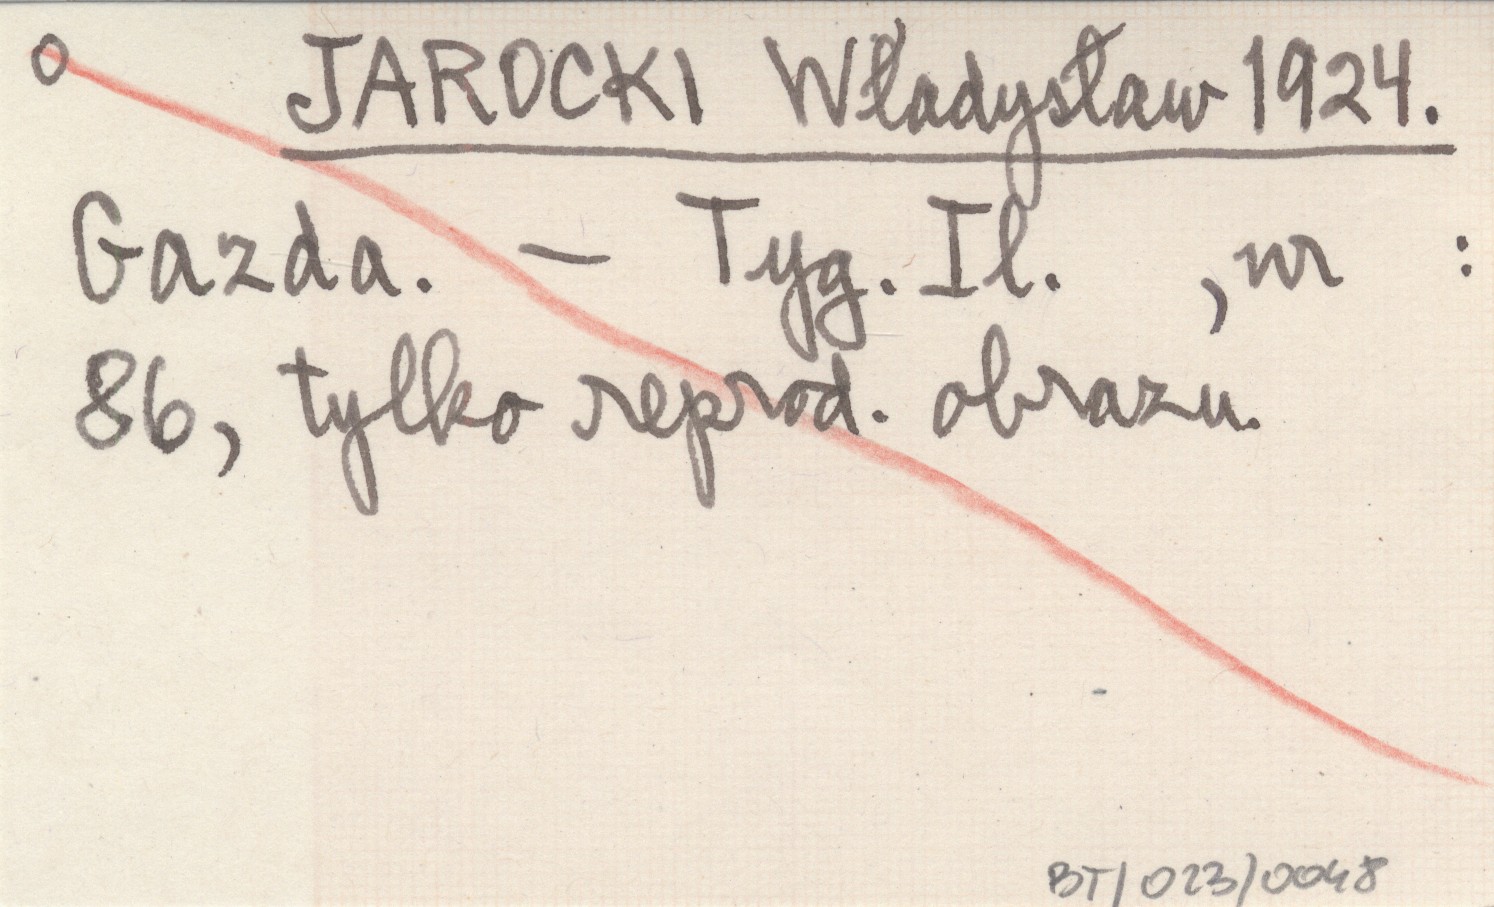 o JAROCKI Władysław 1924.
Gazda. – Tyg. Il. , nr :
86, tylko reprod. obrazu.
BT/023/0048